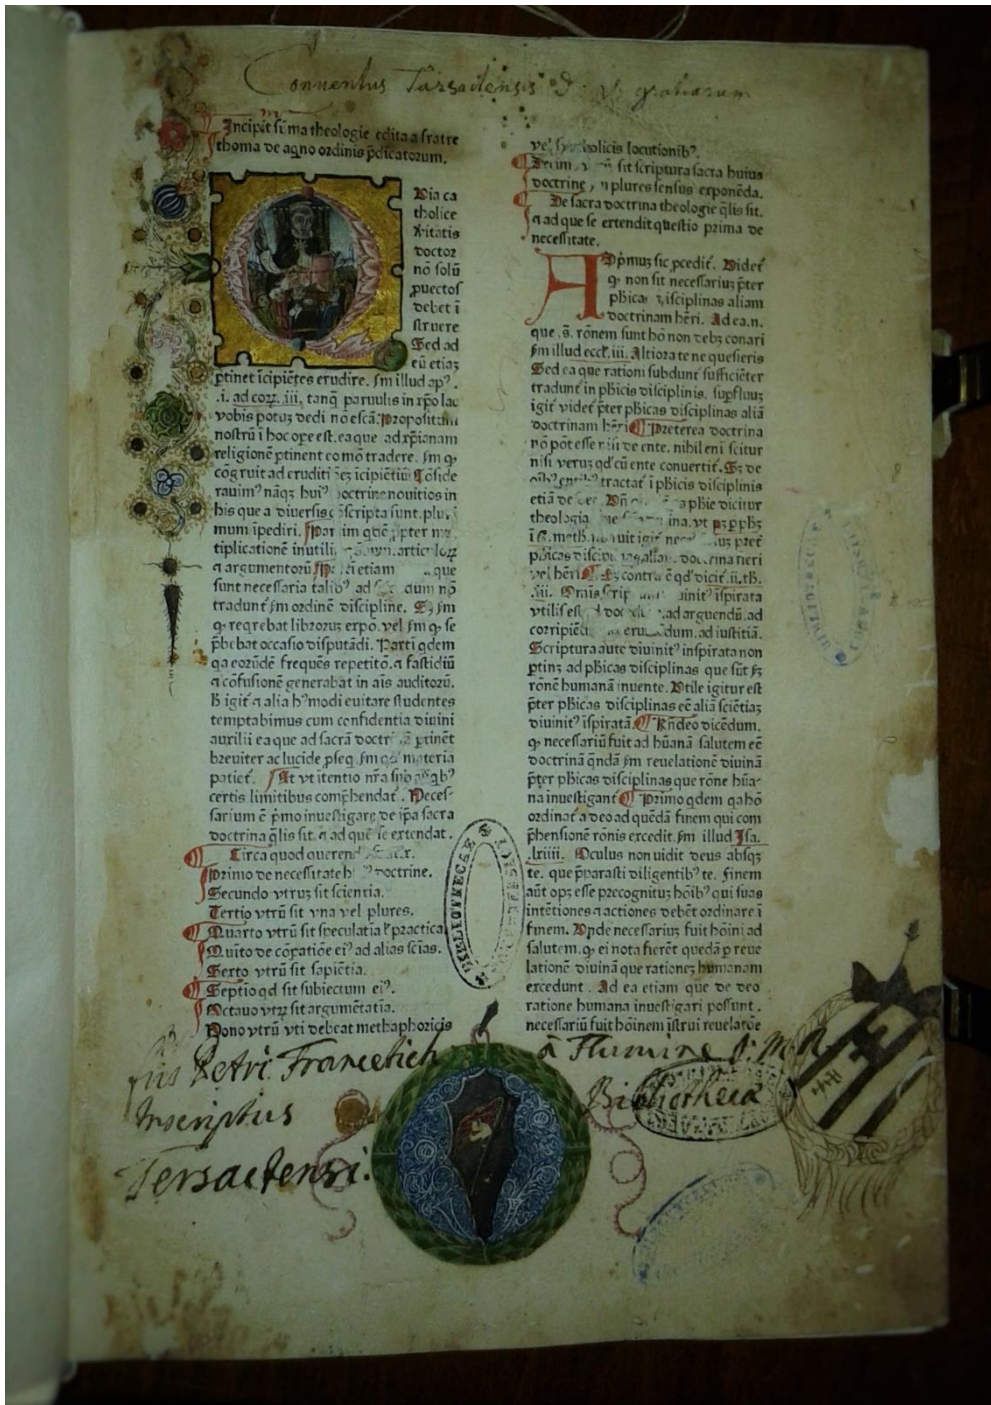 Conuentus Tarsactensis
Incipit sūma theologie edita a fratre
thoma de aqno ordinis p̄dicatorum.
Quia ca
tholice
ꝟitatis
doctor
nō solū
ꝓuectos
debet ī
struere
Sed ad
eū etiaꝫ
ꝑtinet īcipiētes erudire. ẜm illud apꝰ.
.i. ad coꝝ. iii. tanq̄ paruulis in xp̄o lac
vobis potuꝫ dedi nō escā. Propositum
nostrū ī hoc oꝑe est. ea que ad xp̄ianam
religionē ꝑtinent eo mō tradere. ẜm ꝙ
cōgruit ad eruditionem īcipiētiū Cōside
rauimꝰ nāqꝫ huiꝰ doctrine nouitios in
his que a diuersis scripta sunt. pluri
mum īpediri. Partim propter
tiplicationē inutiliū articuloꝝ
⁊ argumentorū etiam que
sunt necessaria talibꝰ ad dum nō
tradunt ẜm ordinē discipline. Sꝫ ẜm
ꝙ reqrebat libroruꝫ expō. vel ẜm ꝙ se
p̄bebat occasio disputādi. Parti qdem
qa eorūdē frequēs repetitō. ⁊ fastidiū
⁊ cōfusionē generabat in aīs auditorū.
igit ⁊ alia hꝰmodi euitare studentes
temptabimus cum confidentia diuini
auxilii ea que ad sacrā doctrinā ꝑtinēt
breuiter ac lucide ꝓseq ẜm materia
patiet. At vt itentio nr̄a sub
certis limitibus comp̄hendat. Neces-
sarium ē p̄mo inuestigare de ip̄a sacra
doctrina q̄lis sit. ⁊ ad que se extendat.
Circa quod querenda
Primo de necessitate hꝰ doctrine.
Secundo vtruꝫ sit scientia.
Tertio vtrū sit vna vel plures.
Quarto vtrū sit speculatia ł practica
Quito de cōpatiōe eiꝰ ad alias sciās.
Sexto vtrū sit sapiētia.
Septio qd sit subiectum eiꝰ.
Octauo vtꝝ sit argumētatia.
Nono vtrū vti debeat methaphoricis
vel symbolicis locutionibꝰ.
Decim vtrū sit scriptura sacra huius
doctrine plures sensus exponēda.
De sacra doctrina theologie q̄lis sit.
⁊ ad que se extendit questio prima de
necessitate.
Ad p̄muꝫ sic ꝓcedit. Videt
ꝙ non sit necessariuꝫ p̄ter
ph̄icas disciplinas aliam
doctrinam hēri. Ad ea. n.
que. s. rōnem sunt hō non debꝫ conari
ẜm illud eccl̄. iii. Altiora te ne quesieris
Sed ea que rationi subdunt sufficiēter
tradunt in ph̄icis disciplinis. supfluuꝫ
igit videt p̄ter ph̄icas disciplinas aliā
doctrinam hēri Preterea doctrina
nō pōt esse nisi de ente. nihil eni scitur
nisi veruꝫ qd cū ente conuertit. Sꝫ de
oībꝰ entibꝰ tractat ī ph̄icis disciplinis
etiā de deo. Vn̄ ph̄ie dicitur
theologia
doctrina fieri
vel hēri Sꝫ contra ē qd dicit. ii. th.
.iii. Omnis scriptura diuinitꝰ īspirata
vtilis est ad docendū. ad arguendū. ad
corripiēdū erudiendum. ad iustitiā.
Scriptura aūte diuinitꝰ inspirata non
ꝑtinꝫ ad ph̄icas disciplinas que sūt ẜꝫ
rōnē humanā inuente. Vtile igitur est
p̄ter ph̄icas disciplinas eē aliā sciētiaꝫ
diuinitꝰ īspiratā Rn̄deo dicēdum.
ꝙ necessariū fuit ad hūanā salutem eē
doctrinā q̄ndā ẜm reuelationē diuinā
p̄ter ph̄icas disciplinas que rōne hūa-
na inuestigant Primo qdem qa hō
ordinat a deo ad quēdā finem qui com
p̄hensionē rōnis excedit. ẜm illud Isa.
.lxiiii. Oculus non uidit deus absqꝫ
te. que p̄parasti diligentibꝰ te. Finem
aūt opꝫ esse precognituꝫ hōibꝰ qui suas
intētiones ⁊ actiones debēt ordinare ī
finem. Vnde necessariuꝫ fuit hōini ad
salutem. ꝙ ei nota fierēt quedā ꝑ reue
lationē diuinā que rationeꝫ humanam
excedunt. Ad ea etiam que de deo
ratione humana inuestigari possunt.
necessariū fuit hōinem īstrui reuelatōe
Petri Francetich
à Flumine
Inscriptus
Bibliotheca
Tersactensi.
BIBLIOTHECAE